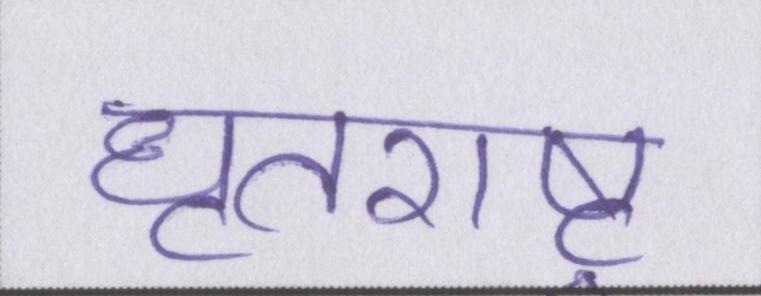 धृतराष्ट्र